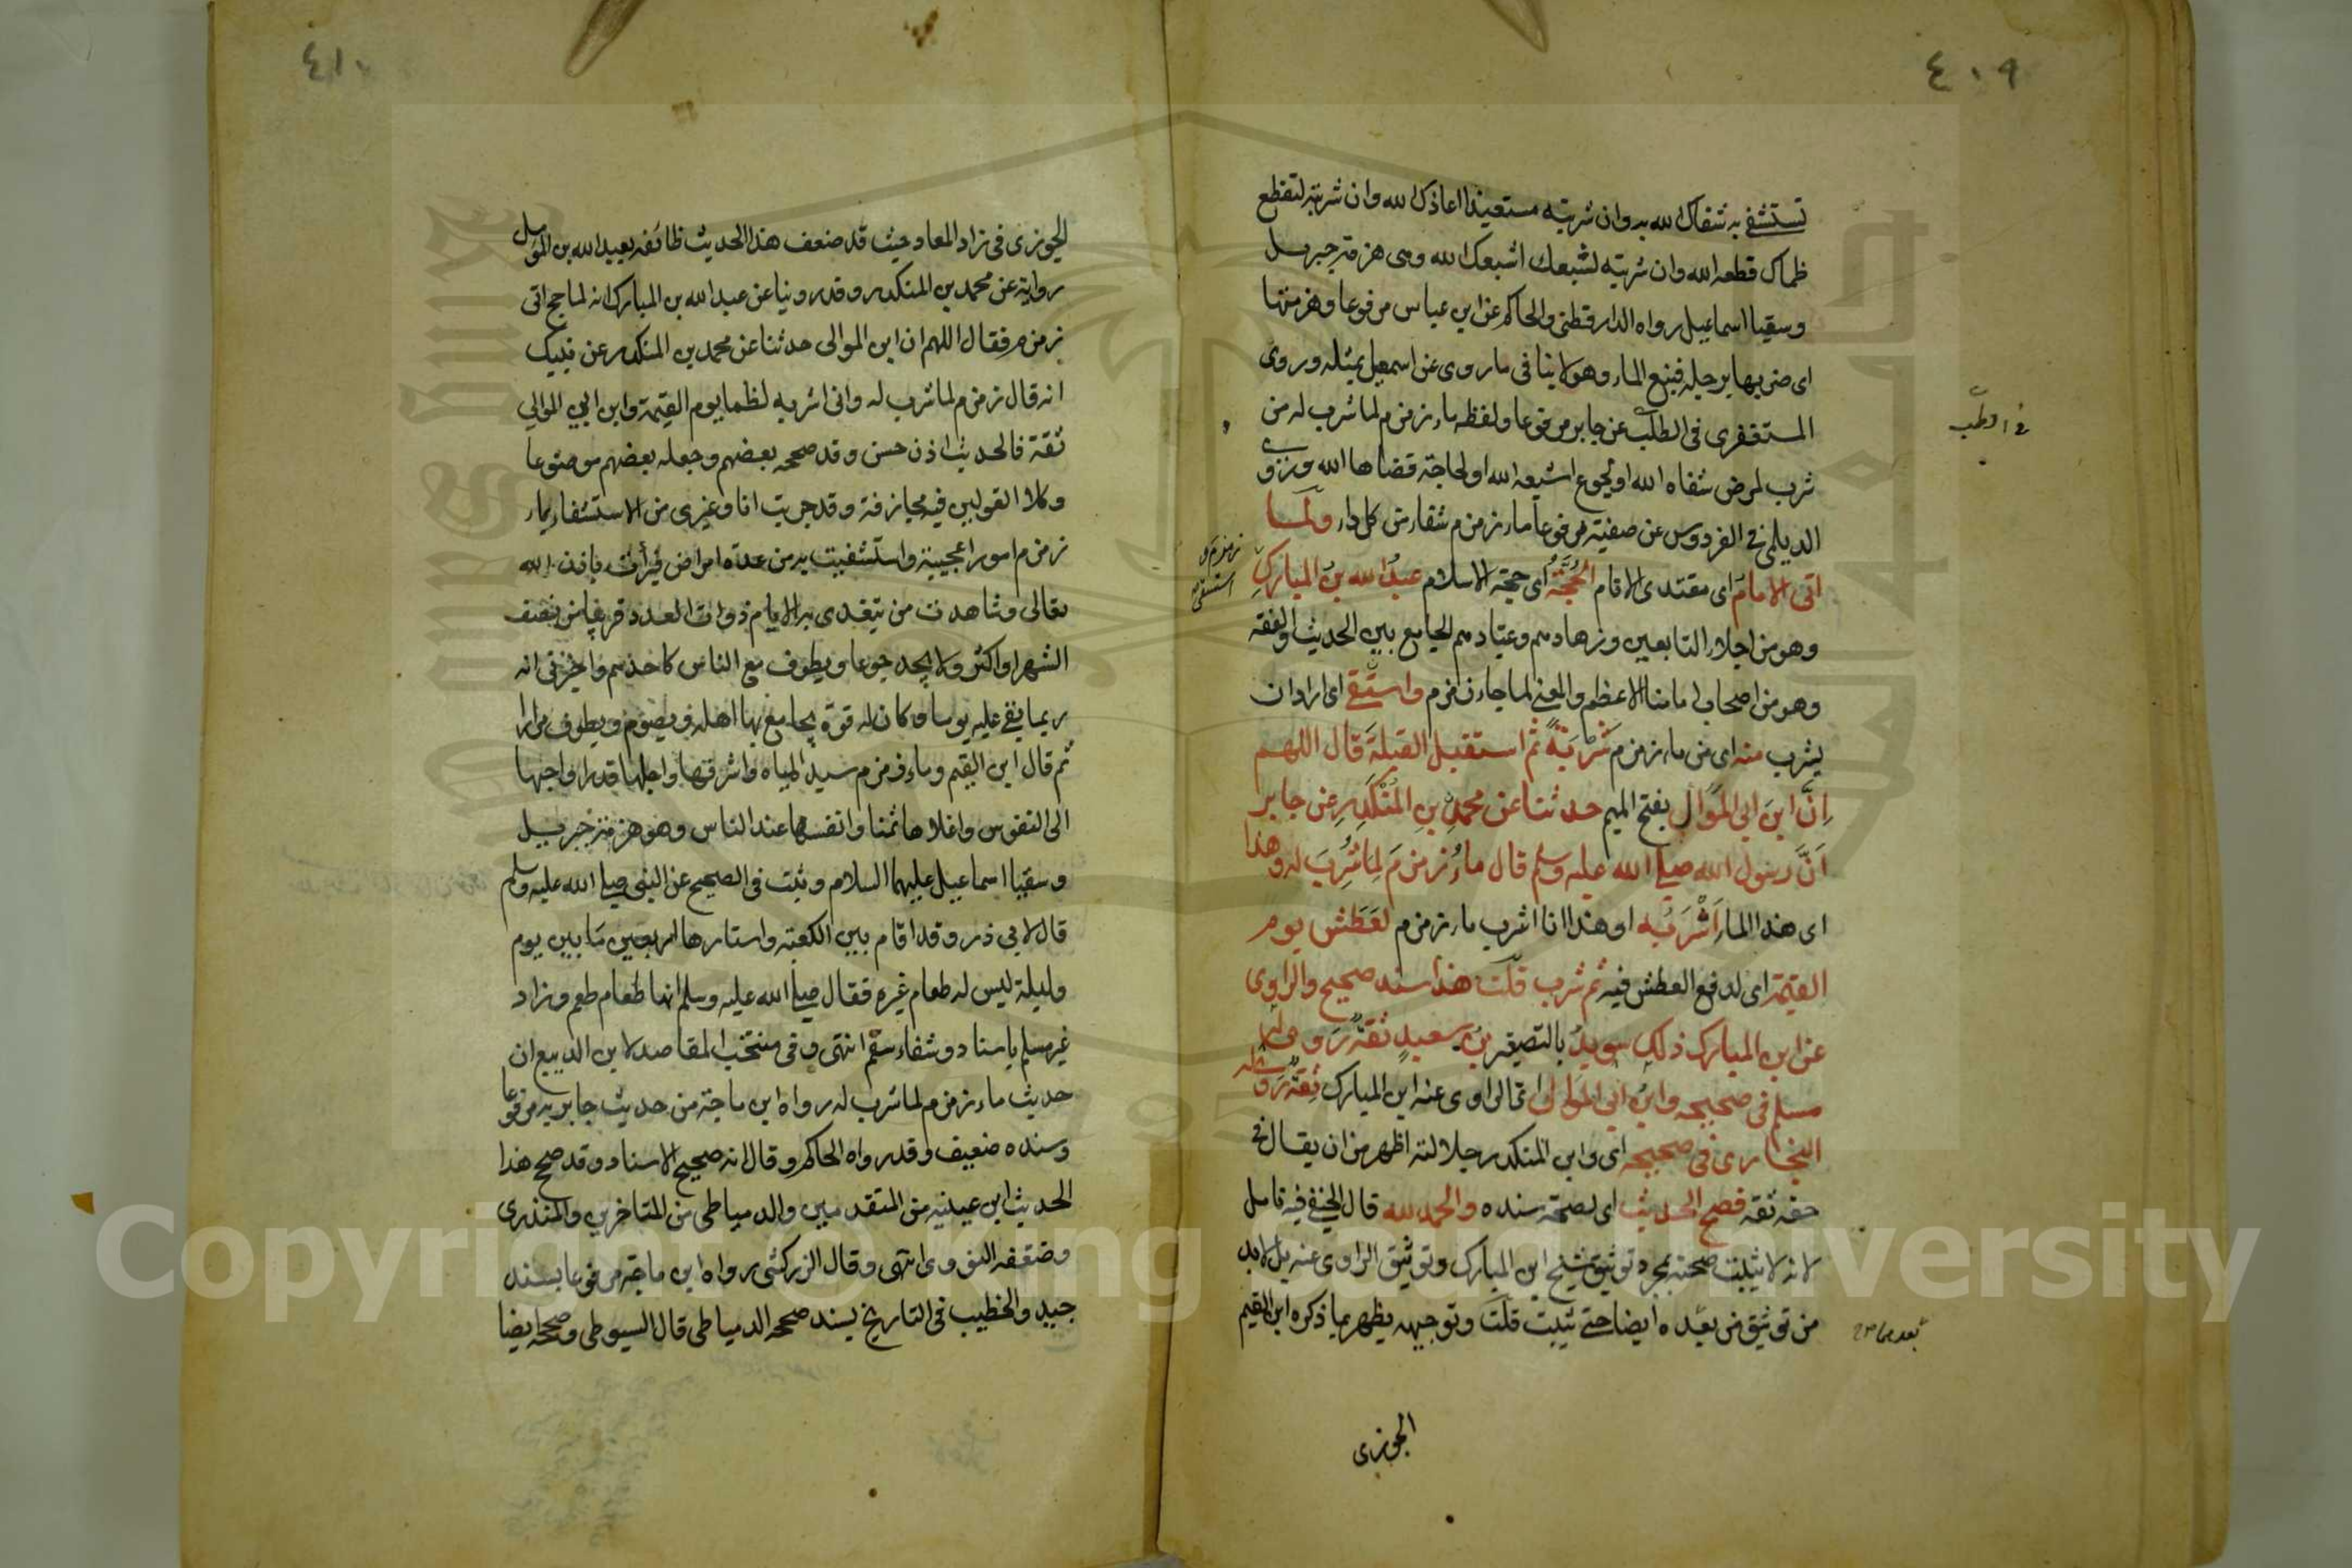 ٤٠٩
تستشفي به شفاك الله به وان شربته مستعيذا اعاذك الله وان شربته لتقطع
ظماك قطعه الله وان شربته لشبعك اشبعك الله وهي هزمة جبريل
وسقيا اسماعيل رواه الدارقطني والحاكم عن ابن عباس مرفوعا وهزمتها
اى ضربها برجله فينبع الماء وهو لا ينافي ما روى عن اسمعيل بمثله وروى
المستغفرى في الطب عن جابر مرفوعا ولفظه ماء زمزم لما شرب له من
شرب لمرض شفاه الله او لجوع اشبعه الله او لحاجة قضاها الله وروى
الديلمي في الفردوس عن صفية مرفوعا ماء زمزم شفاء من كل داء ولما
اتى الامام اى مقتدى الانام الحجة اى حجة الاسلام عبد الله بن المبارك
زمزم و
استسقى
وهو من اجلاء التابعين وزهادهم وعبادهم الجامع بين الحديث والفقه
وهو من اصحاب امامنا الاعظم والمعنى لما جاء زمزم واستقى اى اراد ان
يشرب منه اى من ماء زمزم شربة ثم استقبل القبلة قال اللهم
ان ابن ابي الموال بفتح الميم حدثنا عن محمد بن المنكدر عن جابر
ان رسول الله صلى الله عليه وسلم قال ماء زمزم لما شرب له وهذا
اى هذا الماء اشربه او هذا انا اشرب ماء زمزم لعطش يوم
القيمة اى لدفع العطش فيه ثم شرب قلت هذا سند صحيح والراوى
عن ابن المبارك ذلك سويد بالتصغير بن سعيد ثقة روى له
مسلم في صحيحه وابن ابي الموال اى الراوى عنه ابن المبارك ثقة روى له
البخارى في صحيحه اى وابن المنكدر جلالته اظهر من ان يقال في
حقه ثقة فصح الحديث اى لصحة سنده والحمد لله قال الحنفي فيه تامل
لانه لا يثبت صحته بمجرد توثيق شيخ ابن المبارك وتوثيق الراوى عنه بل لا بد
من توثيق من بعده ايضا حتى يثبت قلت وتوجيهه يظهر بما ذكره ابن القيم
الجوزى
٤١٠
الجوزى في زاد المعاد حيث قد ضعف هذا الحديث طائفة بعبد الله بن المؤمل
رواية عن محمد بن المنكدر وقد روينا عن عبد الله بن المبارك انه لما حج اتى
زمزم فقال اللهم ان ابن الموالى حدثنا عن محمد بن المنكدر عن نبيك
انه قال زمزم لما شرب له وانى اشربه لظما يوم القيمة وابن ابي الموالي
ثقة فالحديث اذن حسن وقد صححه بعضهم وجعله بعضهم موضوعا
وكلا القولين فيه مجازفة وقد جربت انا وغيرى من الاستشفاء بماء
زمزم امورا عجيبة واستشفيت به من عدة امراض فبرأت باذن الله
تعالى وشاهدت من يتغدى به الايام ذوات العدد قريبا من نصف
الشهر او اكثر ولا يجد جوعا ويطوف مع الناس كاحدهم واخبرنى انه
ربما بقى عليه يوما وكان له قوة يجامع بها اهله ويصوم ويطوف مرارا
ثم قال ابن القيم وماء زمزم سيد المياه واشرفها واجلها قدرا واحبها
الى النفوس واغلاها ثمنا وانفسها عند الناس وهو هزمة جبريل
وسقيا اسماعيل عليهما السلام وثبت في الصحيح عن النبي صلى الله عليه وسلم
قال لابي ذر وقد اقام بين الكعبة واستارها اربعين ما بين يوم
وليلة ليس له طعام غيره فقال صلى الله عليه وسلم انها طعام طعم وزاد
غير مسلم باسناده وشفاء سقم انتهى وفي منتخب المقاصد لابن الديبع ان
حديث ماء زمزم لما شرب له رواه ابن ماجة من حديث جابر به مرفوعا
وسنده ضعيف وقد رواه الحاكم وقال انه صحيح الاسناد وقد صحح هذا
الحديث ابن عيينة من المتقدمين والدمياطى من المتاخرين والمنذرى
وضعفه النووى انتهى وقال الزركشى رواه ابن ماجة مرفوعا بسند
جيد والخطيب في التاريخ بسند صححه الدمياطى قال السيوطى وصححه ايضا
Copyright © King Saud University